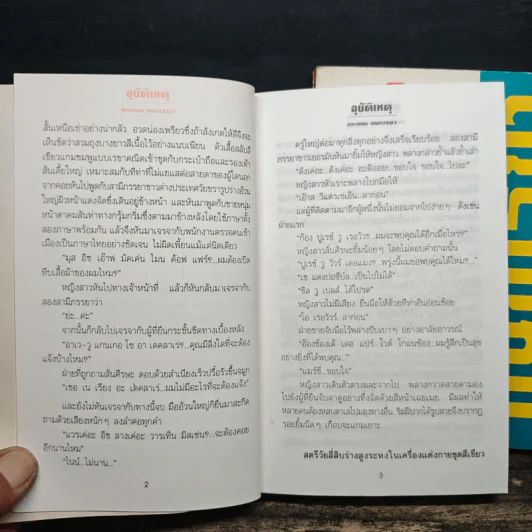 อุบัติเหตุ
สั้นเหนือเข่าอย่างน่ากลัว อวดน่องเพรียวซึ่งถ้าสังเกตให้ดีจึงจะ
เห็นชัดว่าสวมถุงบางยาวสีเนื้อไว้อย่างแนบเนียน ตัวเสื้อสลับสี
เขียวแกมชมพูแบบเรขาคณิตเข้าชุดกับกระเป๋าถือและรองเท้า
ส้นเตี้ยใหญ่ เหมาะสมกับทีท่าที่ไม่แยแสต่อสายตาของผู้โดนอก
จากคอยหันไปพูดกับสามีภรรยาชาวต่างประเทศวัยชรารูปร่างอ้วน
ใหญ่ผิวหน้าแดงจัดซึ่งเดินอยู่ข้างหน้า และหันมาพูดกับชายหนุ่ม
หน้าตาคมสันท่าทางกรุ้มกริ่มซึ่งตามมาข้างหลังโดยใช้ภาษาทั้ง
สองภาษาพร้อมกัน แล้วจึงหันมาเจรจากับพนักงานตรวจคนเข้า
เมืองเป็นภาษาไทยอย่างชัดเจน ไม่ผิดเพี้ยนแม้แต่นิดเดียว
"มุส อิช เอ๊าฟ มัคเค่น ไมน คัอฟ แฟร์ฯ...ผมต้องเปิด
หีบเสื้อผ้าของผมไหมฯ"
หญิงสาวหันไปทางเจ้าหน้าที่ แล้วก็หันกลับมาเจรจากับ
สองสามีภรรยาว่า
"ย่ะ..ค่ะ"
จากนั้นก็กลับไปเจรจากับผู้ที่ยืนกระชั้นชิดทางเบื้องหลัง
แจ้งบ้างไหมฯ"
ฝ่ายที่ถูกถามสั่นศีรษะ ตอบด้วยสำเนียงเร็วปรื๋อรัวขึ้นจมูก
และยังไม่ทันเจรจากับทางนี้จบ มืออ้วนใหญ่ก็ยื่นมาสะกิด
ถามด้วยเสียงหนักๆ ลงลำคอทุกคำ
อีกนานไหม"
"ไนน์...ไม่นาน..."
2
อุบัติเหตุ
ครู่ใหญ่ต่อมาทุกสิ่งทุกอย่างจึงเสร็จเรียบร้อย สองสามี
ภรรยาชาวเยอรมันหันมายิ้มให้หญิงสาว พลางกล่าวย้ำแล้วย้ำเล่า
"ดังเค่อะ...ดังเค่อะ อะดิออย...ขอบใจ ขอบใจ...ไปละ"
หญิงสาวหัวเราะพลางโบกมือให้
"เอ๊าส วีแดรเซเอ็น..ลาก่อน"
แต่ผู้ที่ติดตามมาอีกผู้หนึ่งนั่นไม่ยอมจากไปง่ายๆ ดังเช่น
ฝ่ายแรก
"ก๊อง ปูเรซ์ วู เรอวัวร์...ผมจะพบคุณได้อีกเมื่อไหร่ฯ"
หญิงสาวสั่นศีรษะยิ้มน้อยๆ โดยไม่ตอบคำถามนั้น
"ปูเรซ์ วู วัวร์ เดอแมงฯ...พรุ่งนี้ผมขอพบคุณได้ไหมฯ..."
"เซ แตงปอซีบัล เป็นไปไม่ได้"
"ซิล วู เปลส์...ได้โปรด"
หญิงสาวไม่มีเสียง ยื่นมือให้ด้วยทีท่าอันอ่อนช้อย
"โอ เรอวัวร์...ลาก่อน"
ฝ่ายชายจับมือไว้พลางบีบเบาๆ อย่างอาลัยอาวรณ์
"อ็องช็องเต้ เดอ แปร์ โวต์ โกแนซ็อง...ผมรู้สึกเป็นสุข
อย่างยิ่งที่ได้พบคุณ..."
"แมร์ซี่...ขอบใจ"
หญิงสาวเดินตัวตรงผละจากไป พลางกวาดสายตามอง
ไปยังผู้ที่ยืนจับตาดูอย่างทึ่งจัดด้วยสีหน้าเฉยเมย มีผลทำให้
หลายคนต้องหลบตาเสไปมองทางอื่น ริมฝีปากได้รูปสวยจึงปรากฏ
รอยยิ้มนิดๆ เกือบจะแกมเยาะ
สตรีวัยสี่สิบร่างสูงระหงในเครื่องแต่งกายชุดสีเขียว
3